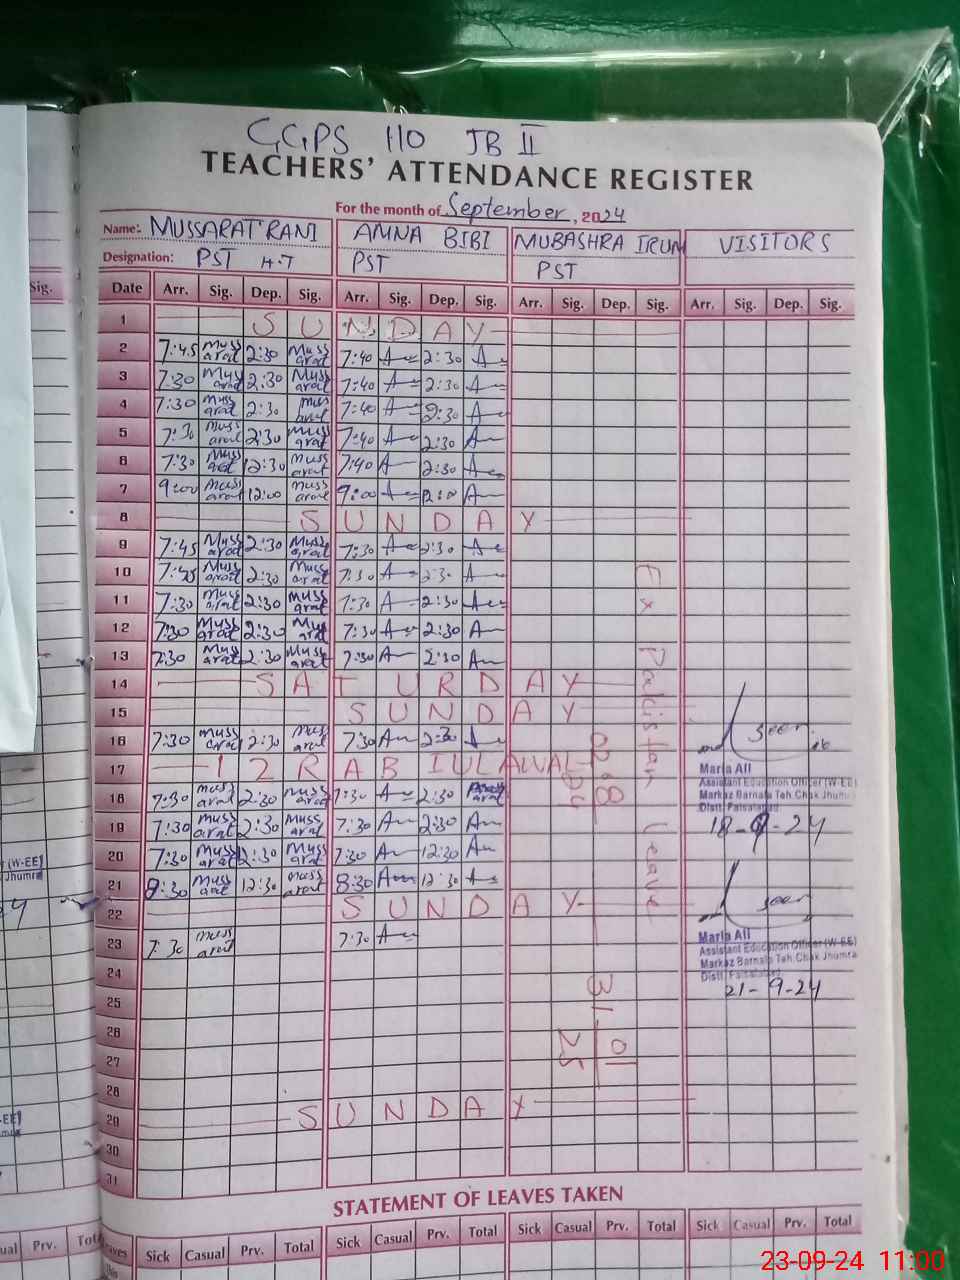 GGPS 110 JB II
TEACHERS' ATTENDANCE REGISTER
For the month of September, 2024
Name: MUSSARAT RANI AMNA BIBI MUBASHRA IRUM VISITORS
Designation: PST H.T PST PST
Sig.
Date Arr. Sig. Dep. Sig. Arr. Sig. Dep. Sig. Arr. Sig. Dep. Sig. Arr. Sig. Dep. Sig.
1 SUNDAY
2 7:45 Mussarat 2:30 Mussarat 7:40 A 2:30 A
3 7:30 Mussarat 2:30 Mussarat 7:40 A 2:30 A
4 7:30 Mussarat 2:30 Mussarat 7:40 A 2:30 A
5 7:30 Mussarat 2:30 Mussarat 7:40 A 2:30 A
6 7:30 Mussarat 12:30 Mussarat 7:40 A 2:30 A
7 9:00 Mussarat 12:00 Mussarat 9:00 A 12:00 A
8 SUNDAY
9 7:45 Mussarat 2:30 Mussarat 7:30 A 2:30 A
10 7:45 Mussarat 2:30 Mussarat 7:30 A 2:30 A
11 7:30 Mussarat 2:30 Mussarat 7:30 A 2:30 A
12 7:30 Mussarat 2:30 Mussarat 7:30 A 2:30 A
13 7:30 Mussarat 2:30 Mussarat 7:30 A 2:30 A
14 SATURDAY
15 SUNDAY
16 7:30 Mussarat 2:30 Mussarat 7:30 A 2:30 A
17 12 RABIULAWAL
18 7:30 Mussarat 2:30 Mussarat 7:30 A 2:30
19 7:30 Mussarat 2:30 Mussarat 7:30 A 2:30 A
20 7:30 Mussarat 12:30 Mussarat 7:30 A 12:30 A
21 8:30 Mussarat 12:30 Mussarat 8:30 A 12:30 A
22 SUNDAY
23 7:30 Mussarat 7:30 A
24
25
26
27
28
29 SUNDAY
30
31
Ex Pakistan Leave
02-8-24
31-01-25
seen
Maria Ali
Assistant Education Officer (W-EE)
Markaz Barnala Teh. Chak Jhumra
Distt. Faisalabad
18-9-24
seen
Maria Ali
Assistant Education Officer (W-EE)
Markaz Barnala Teh. Chak Jhumra
Distt. Faisalabad
21-9-24
STATEMENT OF LEAVES TAKEN
Sick Casual Prv. Total Sick Casual Prv. Total Sick Casual Prv. Total Sick Casual Prv. Total
23-09-24 11:00